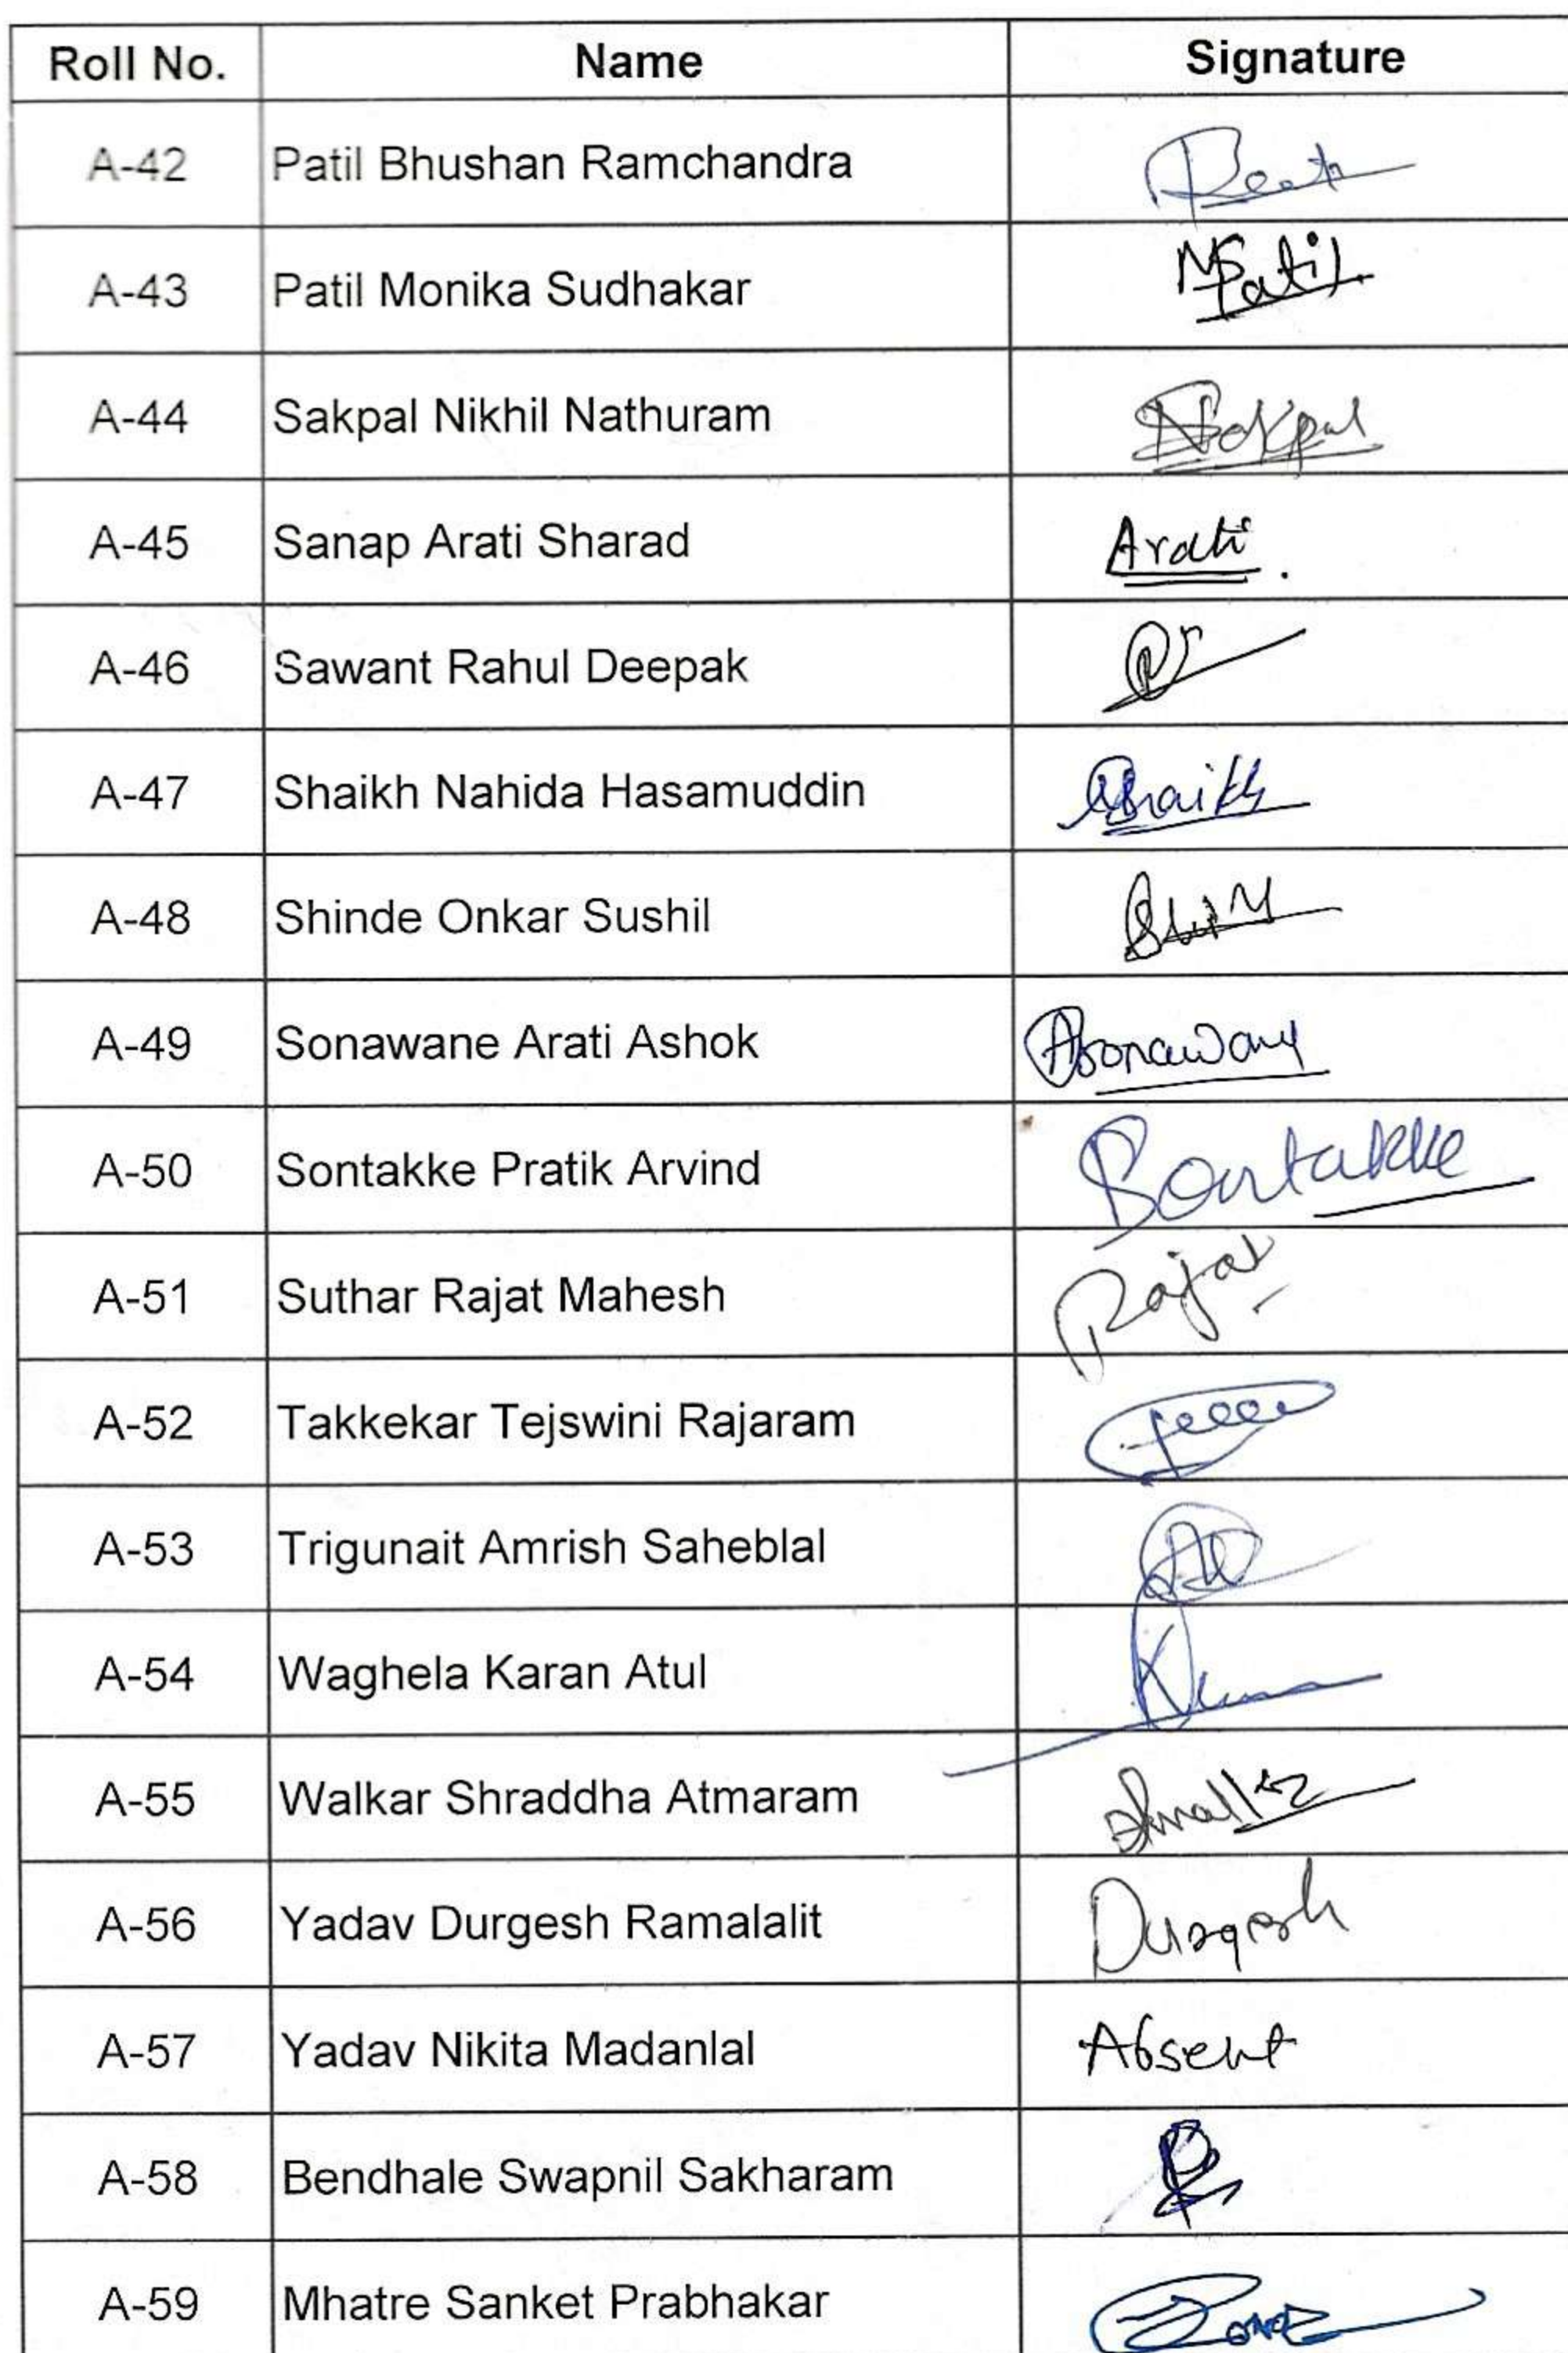 Roll No. Name Signature
A-42 Patil Bhushan Ramchandra
A-43 Patil Monika Sudhakar MSPatil.
A-44 Sakpal Nikhil Nathuram NSakpal
A-45 Sanap Arati Sharad Arati.
A-46 Sawant Rahul Deepak
A-47 Shaikh Nahida Hasamuddin Shaikh
A-48 Shinde Onkar Sushil
A-49 Sonawane Arati Ashok ASonawane
A-50 Sontakke Pratik Arvind Sontakke
A-51 Suthar Rajat Mahesh Rajat
A-52 Takkekar Tejswini Rajaram
A-53 Trigunait Amrish Saheblal
A-54 Waghela Karan Atul
A-55 Walkar Shraddha Atmaram
A-56 Yadav Durgesh Ramalalit Durgesh
A-57 Yadav Nikita Madanlal Absent
A-58 Bendhale Swapnil Sakharam
A-59 Mhatre Sanket Prabhakar